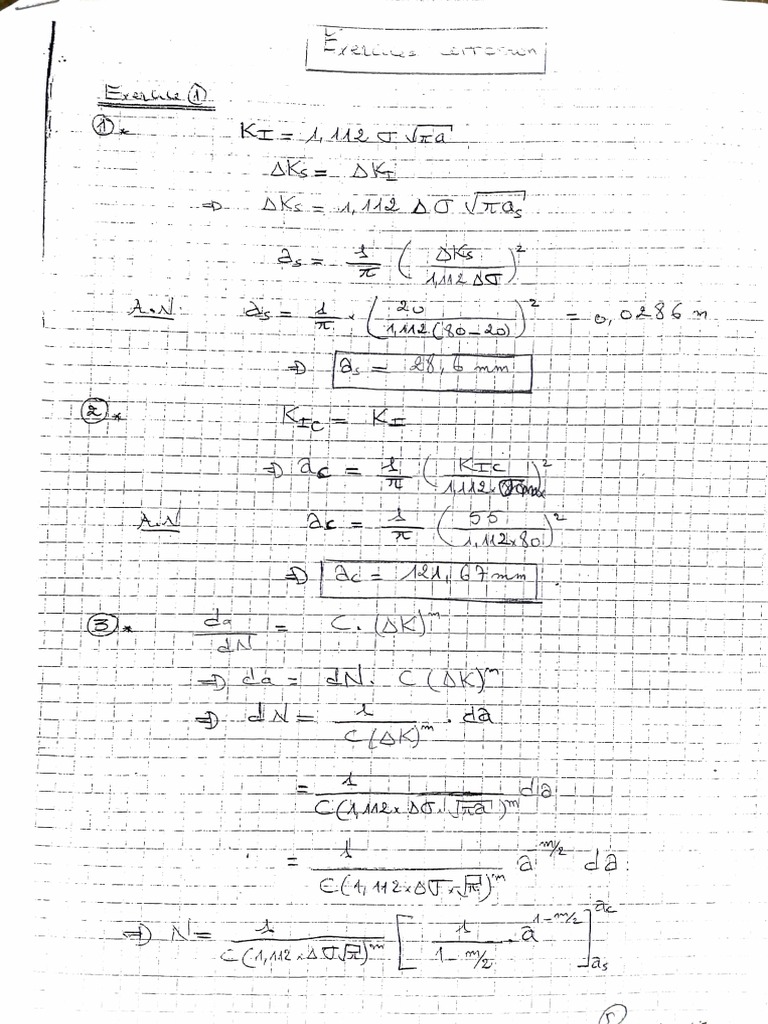 Exercices correction
Exercice ①
① * K_I = 1,112 σ √(πa)
ΔK_s = ΔK_I
⇒ ΔK_s = 1,112 Δσ √(πa_s)
a_s = 1/π (ΔK_s / 1,112 Δσ)²
A.N a_s = 1/π × (20 / 1,112 (80-20))² = 0,0286 m
⇒ a_s = 28,6 mm
② * K_IC = K_I
⇒ a_c = 1/π (K_IC / 1,112 × σ_max)²
A.N a_c = 1/π (55 / 1,112×80)²
⇒ a_c = 121,67 mm
③ * da/dN = C. (ΔK)^m
⇒ da = dN. C (ΔK)^m
⇒ dN = 1 / C(ΔK)^m . da
= 1 / C(1,112 × Δσ . √(πa))^m da
= 1 / C(1,112 × Δσ × √π)^m a^m/2 da
⇒ N = 1 / C(1,112 × Δσ √π)^m [1 / 1-m/2 . a^1-m/2]_a_s^a_c